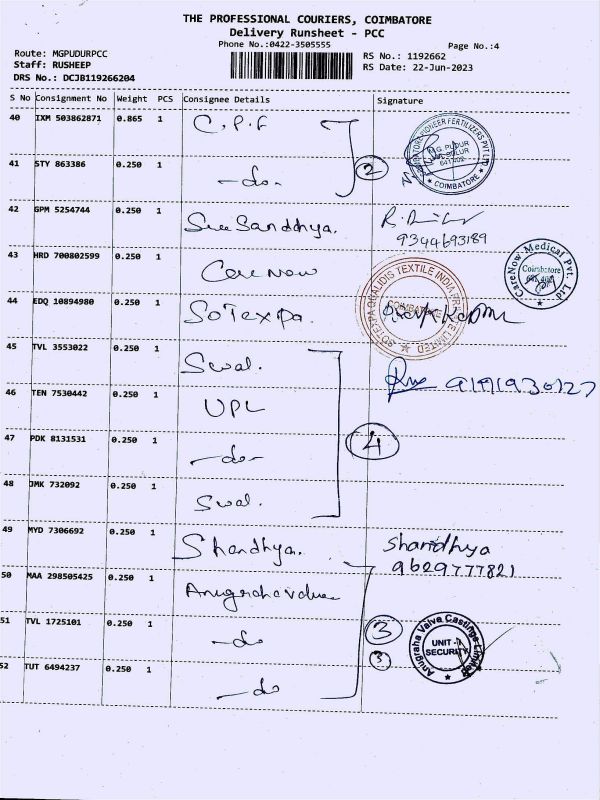 THE PROFESSIONAL COURIERS, COIMBATORE
Delivery Runsheet - PCC
Phone No.:0422-3505555
Page No.:4
Route: MGPUDURPCC
Staff: RUSHEEP
DRS No.: DCJB119266204
RS No.: 1192662
RS Date: 22-Jun-2023
S No Consignment No Weight PCS Consignee Details Signature
40 IXM 503862871 0.865 1 C.P.F
41 STY 863386 0.250 1 -do-
2
COIMBATORE PIONEER FERTILIZERS PVT LTD
COIMBATORE
42 GPM 5254744 0.250 1 Sree Sandhya.
9344693189
43 HRD 700802599 0.250 1 Care Now
CareNow Medical Pvt. Ltd
Coimbatore
44 EDQ 10894980 0.250 1 SoTexpa
SOTEXPA QUALIDIS TEXTILE INDIA PRIVATE LIMITED
COIMBATORE
45 TVL 3553022 0.250 1 Swal.
46 TEN 7530442 0.250 1 UPL
47 PDK 8131531 0.250 1 -do-
4
48 JMK 732092 0.250 1 Swal.
49 MYD 7306692 0.250 1 Shandhya.
Shandhya
9629777821
50 MAA 298505425 0.250 1 Anugraha valva
51 TVL 1725101 0.250 1 -do
3
52 TUT 6494237 0.250 1 -do
3
Anugraha Valva Castings Limited
UNIT -1
SECURITY